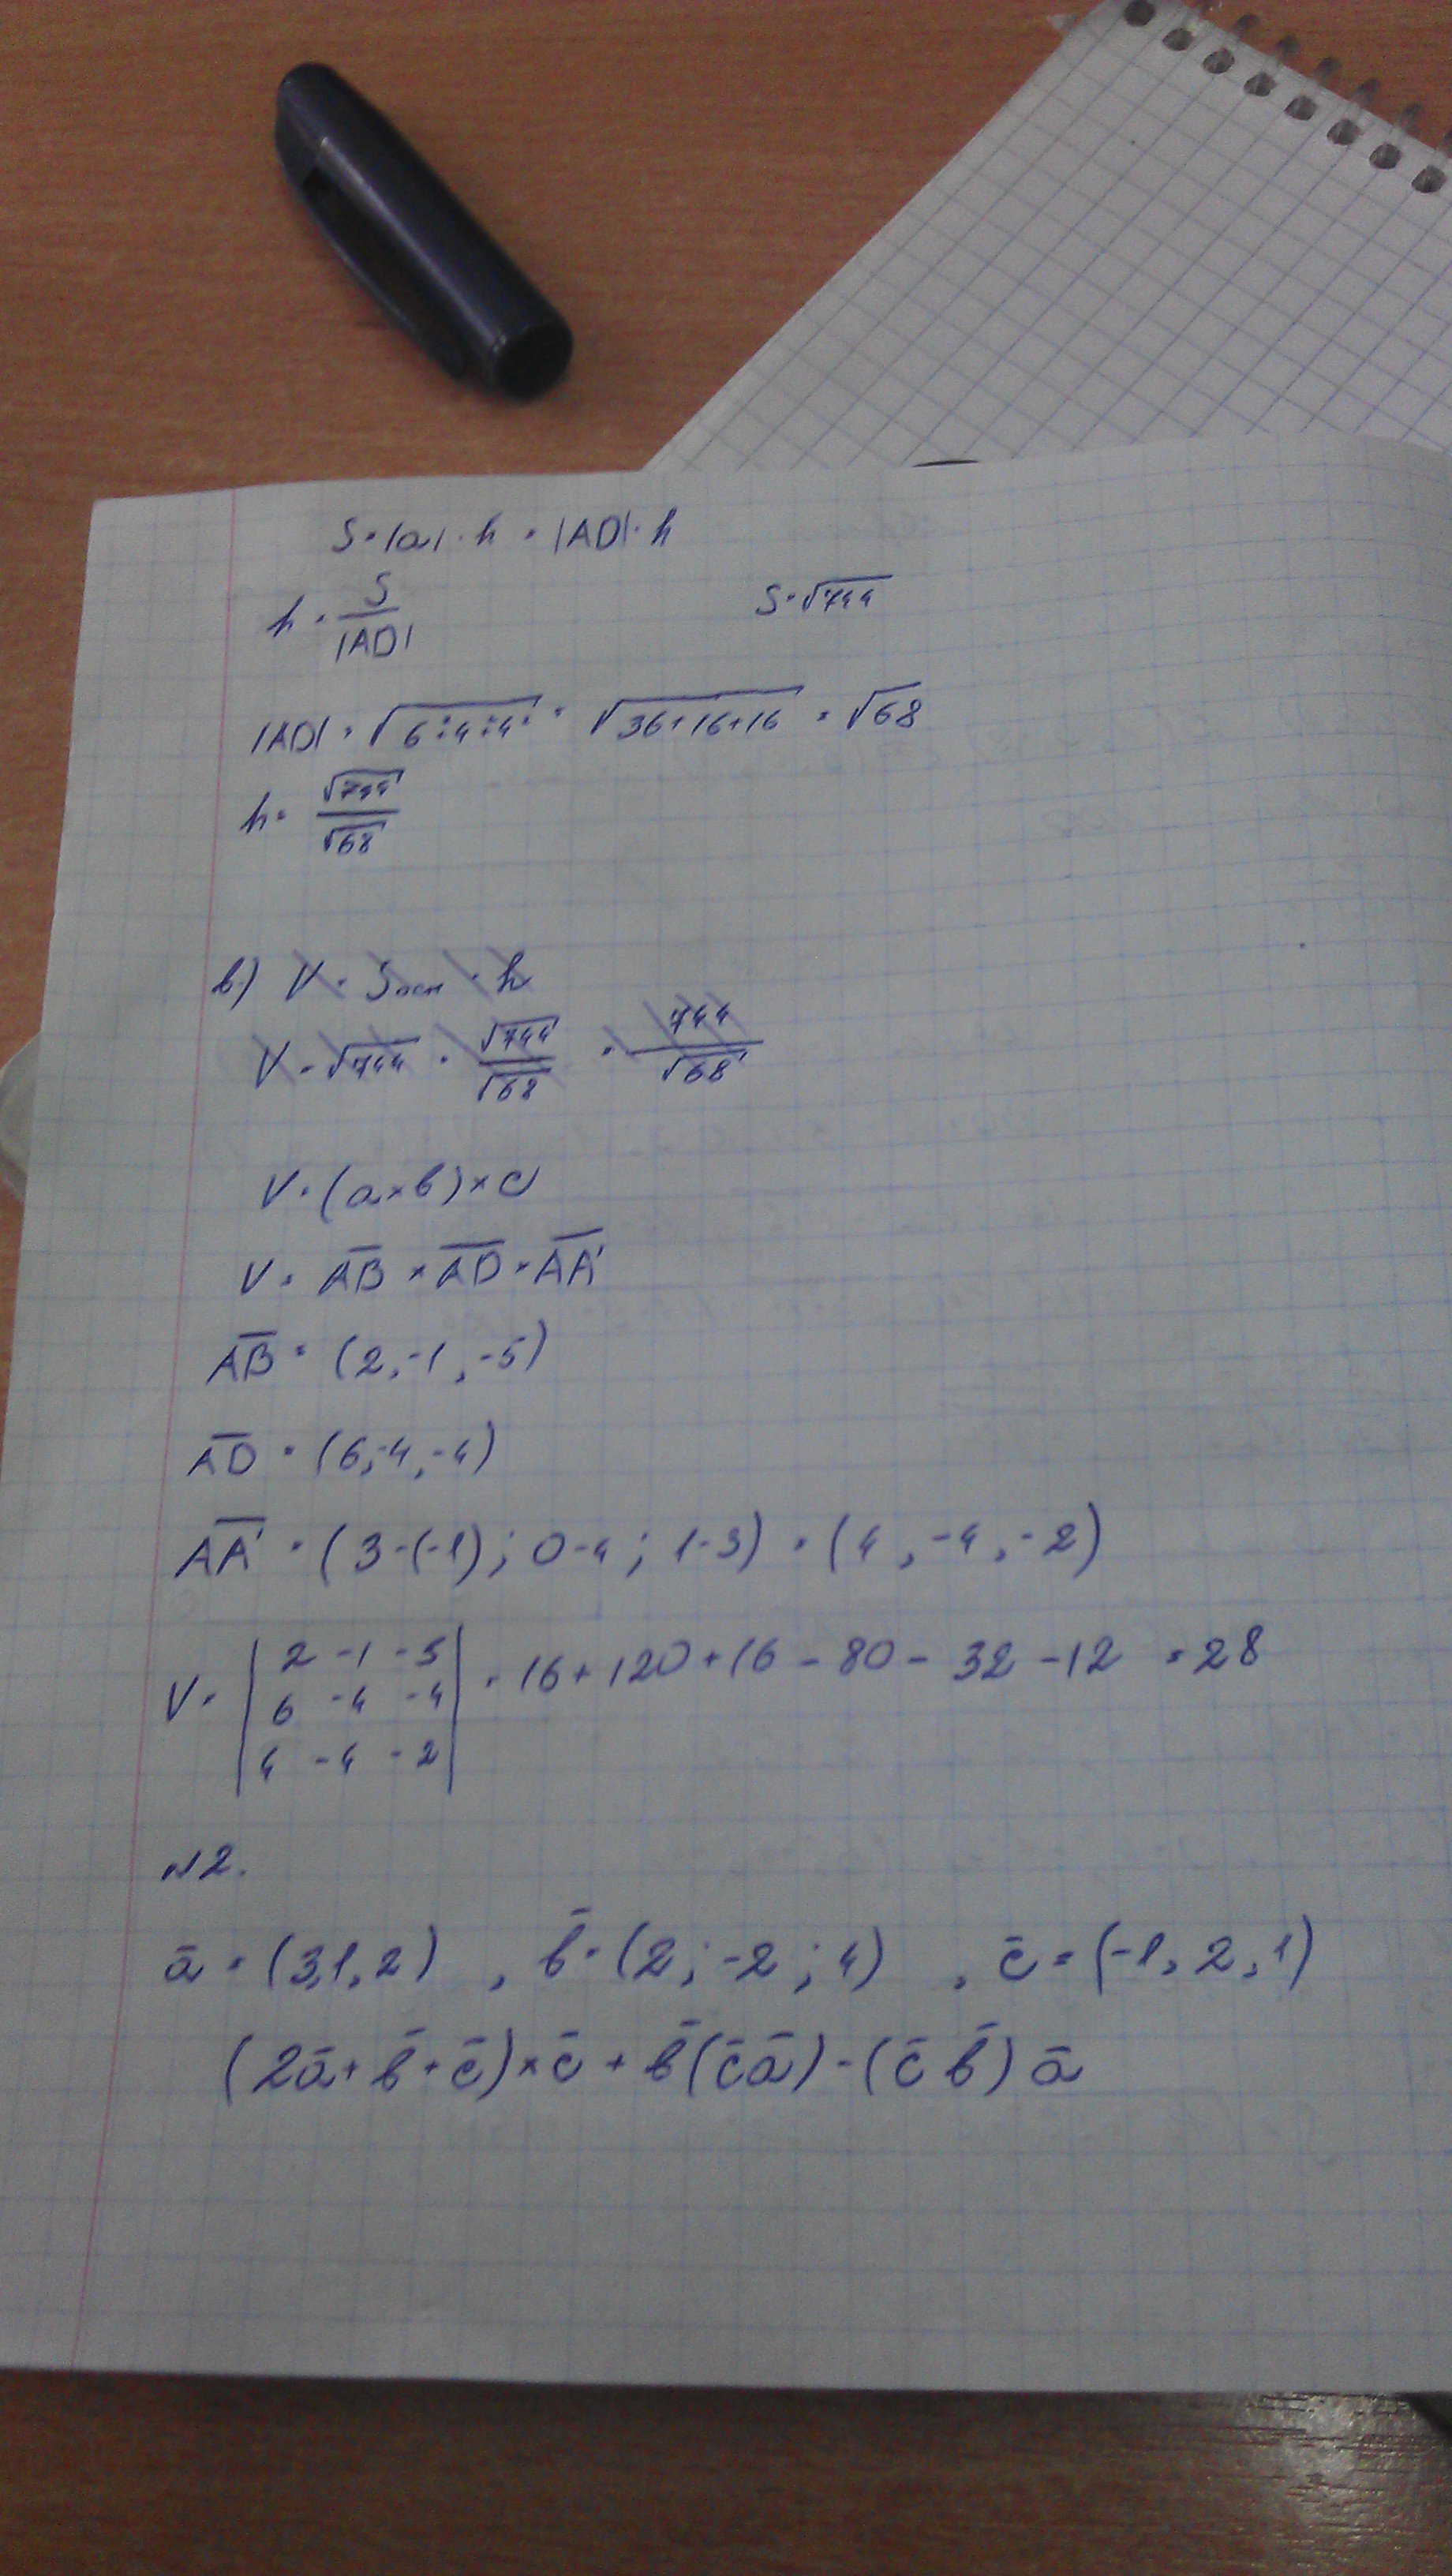 S = |a| · h = |AD| · h
h = S / |AD|    S = √744
|AD| = √(6² + 4² + 4²) = √(36+16+16) = √68
h = √744 / √68
в) V = Sосн · h
V = √744 · √744 / √68 = 744 / √68
V = (a × b) × c
V = AB × AD × AA'
AB = (2, -1, -5)
AD = (6, -4, -4)
AA' = (3-(-1); 0-4; 1-3) = (4, -4, -2)
V = | 2 -1 -5 | = 16 + 120 + 16 - 80 - 32 - 12 = 28
6 -4 -4
4 -4 -2
№2.
a̅ = (3,1,2) , b̅ = (2; -2; 4) , c̅ = (-1, 2, 1)
(2a̅ + b̅ + c̅) × c̅ + b̅(c̅a̅) - (c̅ b̅) a̅